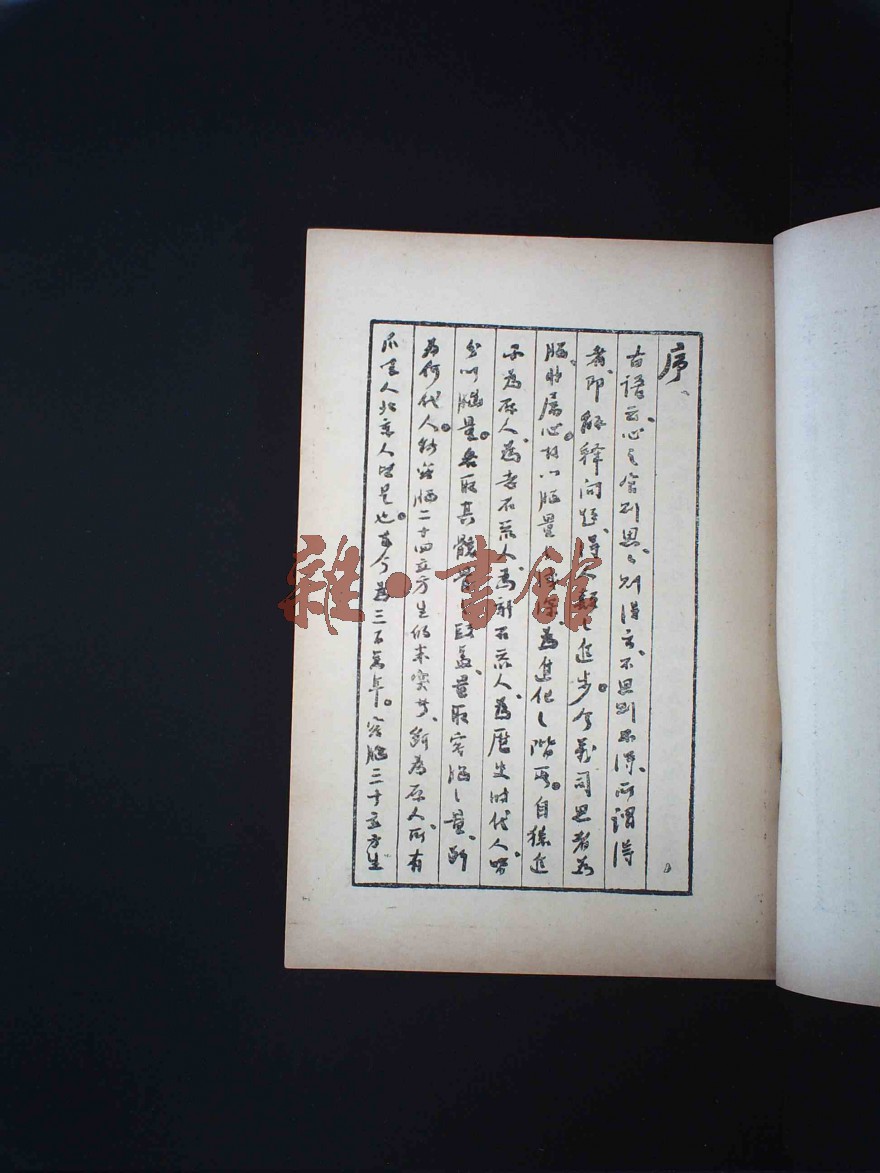 序
古語云、心之官則思、思則得之、不思則不得、所謂得
者、即解釋問題、得人類之進步。今義司思者為
腦、昨屬心、故以腦量 為進化之階段。自猿進
而為原人、為老石器人、為新石器人、為歷史時代人、皆
以腦量。各取其骸骨 量取容腦之量、斷
為何代人、能容腦二十四立方生的米突者、斷為原人、所有
爪哇人北京人皆是也。在今為三百萬年。容腦三十立方生
雜·書館